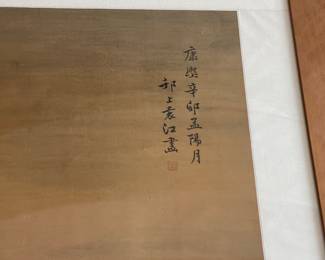 康熙辛卯孟陽月
邗上袁江畫